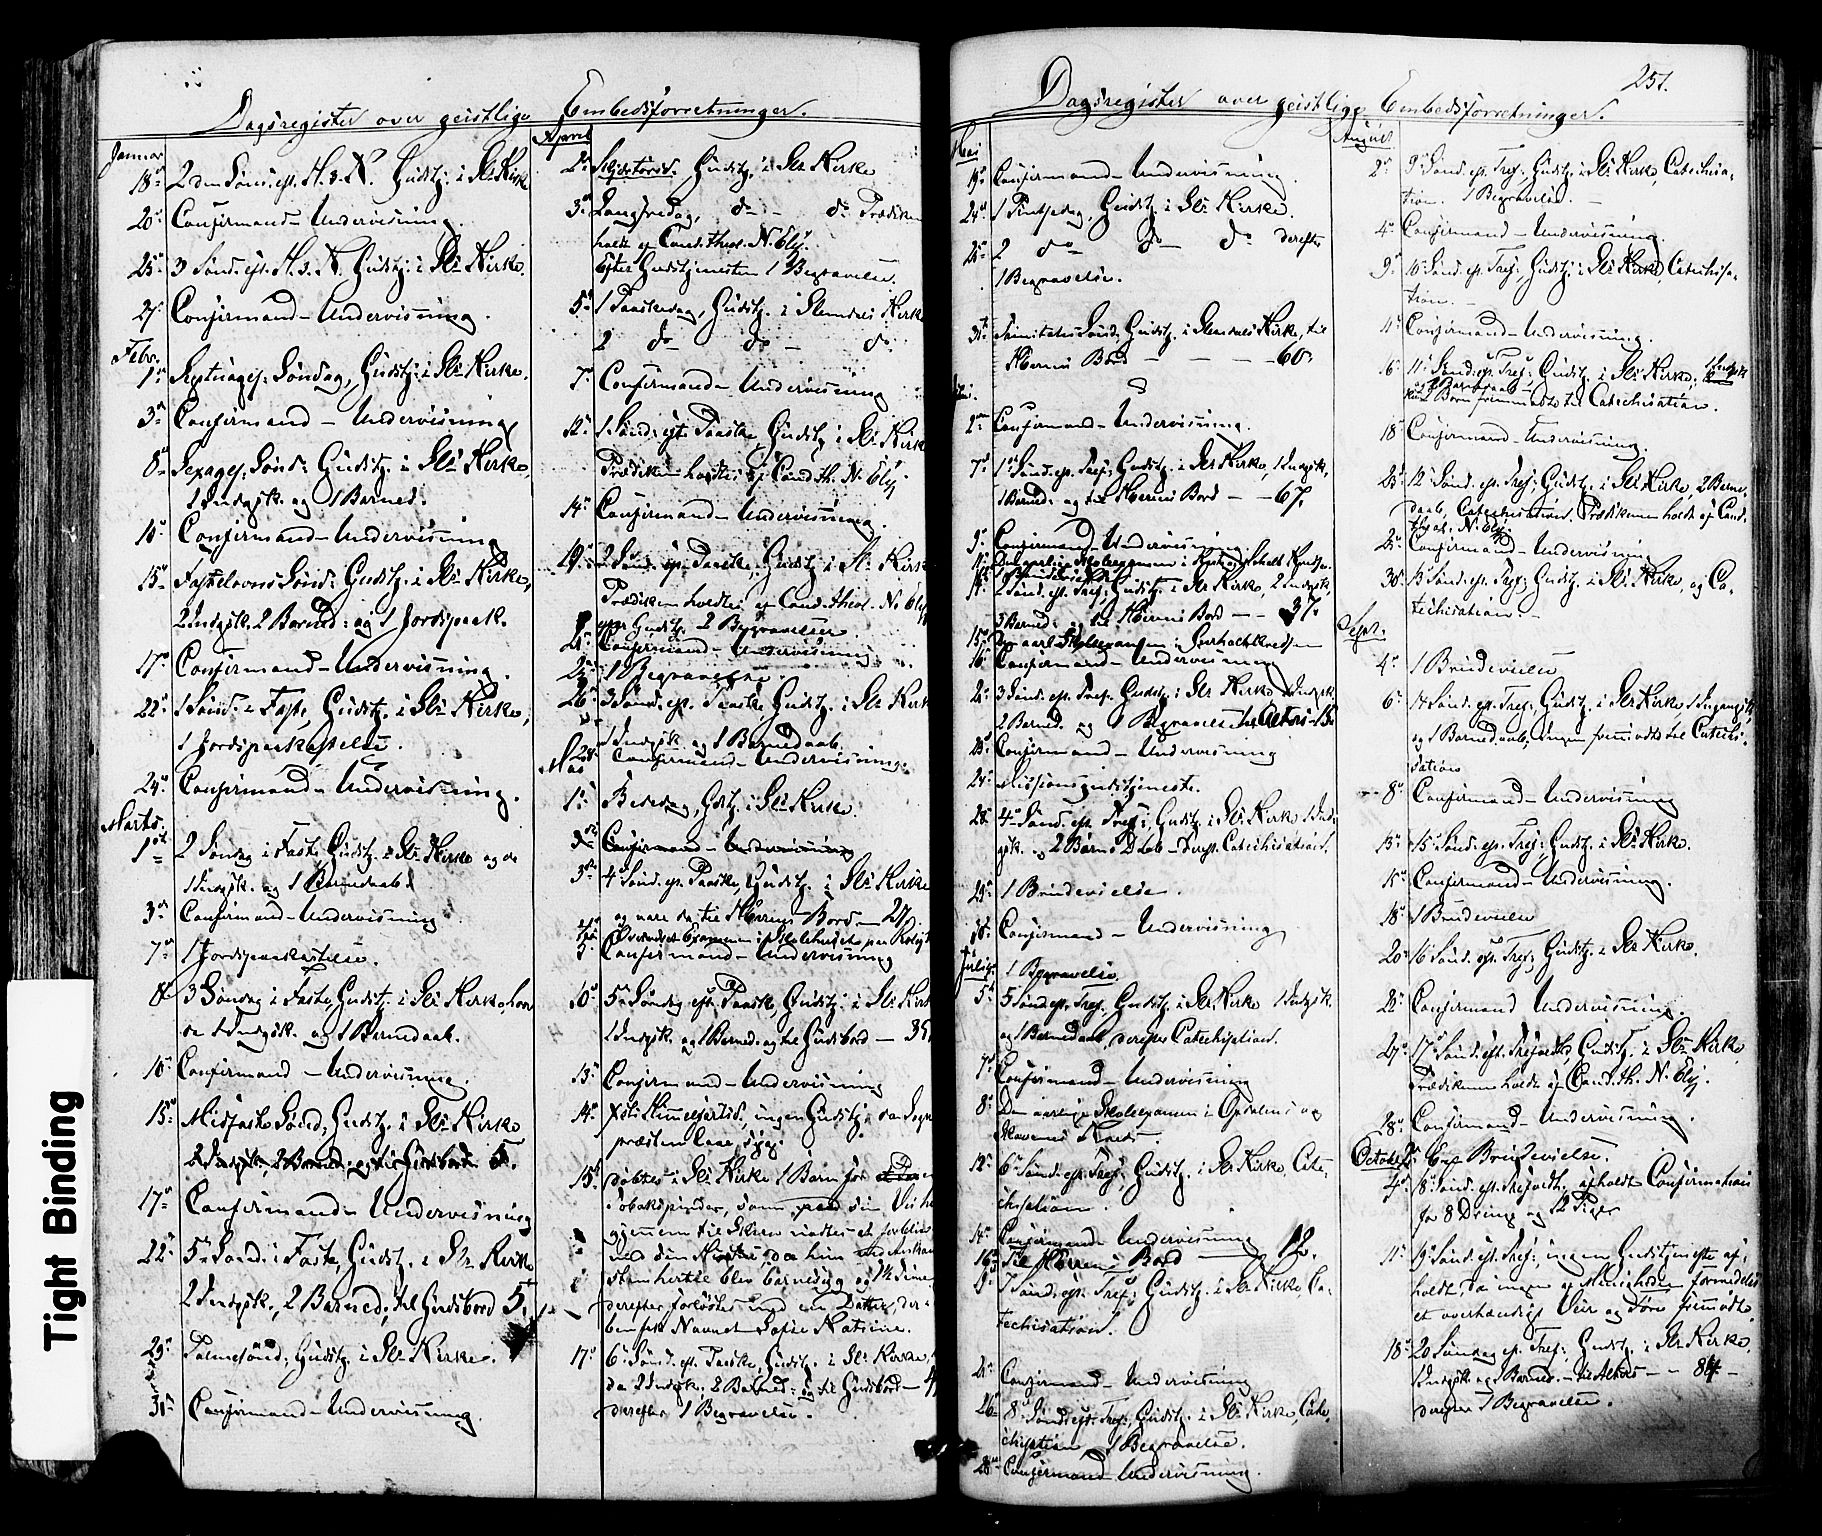 Dagsregister over geistlige Embedsforretninger.
Januar
18de 2den Sønd. eft. H. 3. K. Gudstj. i Sls Kirke
20de Confirmand-Undervisning.
25de 3 Sønd. eft. H. 3. K. Gudstj. i Sls Kirke.
27de Confirmand-Undervisning.
Febr.
1ste Septuages: Søndag, Gudstj. i Sls Kirke.
3de Confirmand-Undervisning
8de Sexages: Sønd: Gudstj. i Sls Kirke,
1 Indgsk. og 1 Barned.
10de Confirmand-Undervisning
15de Fastelavns Sønd: Gudstj. i Sls Kirke,
2 Indgsk. 2 Barned: og 1 Jordspaak.
17de Confirmand-Undervisning.
22de 1 Sønd. i Faste, Gudstj. i Sls Kirke,
1 Jordspaakastelse.
24de Confirmand-Undervisning.
Marts.
1ste 2 Søndag i Faste, Gudstj. i Sls Kirke og de
1 Indgsk. og 1 Barnedaab.
3de Confirmand-Undervisning
7de 1 Jordspaakastelse.
8de 3 Søndag i Faste, Gudstj. i Sls Kirke, hvor
de 1 Indgsk. og 1 Barnedaab.
10de Confirmand-Undervisning.
15de Midfaste Sønd, Gudstj. i Sls Kirke
2 Indgsk, 2 Barned: og til Gudsbord 5.
17de Confirmand-Undervisning
22de 5te Sønd. i Faste, Gudstj. i Sls Kirke
2 Indgsk, 2 Barned; til Gudsbord 5.
29de Palmesønd; Gudstj. i Sls Kirke.
31te Confirmand-Undervisning.
April
2den Skjærtorsd. Gudstj. i Sls Kirke
3de Langfredag, do - do Prædiken
holdt af Cand. theol. N. Elj.
Efter Gudstjenesten 1 Begravelse.
5te 1 Paaskedag, Gudstj. i Slemdals Kirke
2 do do - do
7de Confirmand-Undervisning
12te 1 Sønd. eft. Paaske, Gudstj. i Sls Kirke
Prædiken holdtes af Cand. th. N. Elj
14de Confirmand-Undervisning.
19de 2 Sønd. eft. Paaske, Gudstj. i Sl. Kirke
Prædiken holdtes af Cand. theol. N. Elj
efter Gudstj. 2 Begravelser.
21de Confirmand-Undervisning
1 Begravelse.
26de 3 Sønd. eft. Paaske Gudstj. i Sls Kirke
1 Indgsk og 1 Barnedaab.
28de Confirmand-Undervisning.
Mai
1ste Bededag, Gdstj. i Sls Kirke.
Confirmand-Undervisning
3de 4 Sønd. eft. Paaske, Gudstj. i Sls Kirke
og vare da til Herrens Bord - 27.
5te Confirmand-Undervisning
10de 5te Søndag eft. Paaske, Gudstj. i Sls Kirke
1 Indgsk, og 1 Barned: og til Gudsbord -
13de Confirmand-Undervisning
14de Xsti Himmelfartsd, ingen Gudstj. da Sogne
præsten laae syg.
15de døbtes i Sls Kirke 1 Barn for
17de 6te Sønd. eft. Paaske, Gudstj. i Sls Kirke,
da 2 Indgsk, 2 Barned: og til Gudsbord -
derefter 1 Begravelse.
251.
Dagsregister over geistlige Embedsforretninger.
Mai
19de Confirmand-Undervisning.
24de 1 Pintsedag, Gudstj. i Sls Kirke.
25de 2 do do - do derefter
1 Begravelse.
31te Trinitatis Sønd, Gudstj. i Slemdals Kirke, til
Herrens Bord - - - - 60.
2den Confirmand-Undervisning.
7de 1ste Sønd. eft. Tref; Gudstj. i Sls Kirke, 1 Indgsk,
1 Barned: og til Herrens Bord - - 67.
9de Confirmand-Undervisning
14de 2 Sønd. eft. Tref; Gudstj. i Sls Kirke, 2 Indgsk,
3 Barned: og til Herrens Bord - - 37.
16de Confirmand-Undervisning
21de 3 Sønd. eft. Tref. Gudstj. i Sls Kirke 1 Indgsk
2 Barned. og 1 Begravelse
23de Confirmand-Undervisning
24de Missionsgudstjeneste.
28de 4de Sønd. eft. Tref; Gudstj. i Sls Kirke 1 Ind-
gsk. og 2 Børns Daab - dereft. Catechisation.
29de 1 Brudevielse.
30te Confirmand-Undervisning
Julii
1 Begravelse.
5te 5 Sønd eft. Tref; Gudstj. i Sls Kirke 1 Indgsk
og 1 Barnedaab, derefter Catechisation.
7de Confirmand-Undervisning
8de Den aarlige Skoleexamen i Opdalens og
Kreds.
12te 6te Sønd. eft. Tref; Gudstj. i Sls Kirke, Cate-
chisation.
14de Confirmand-Undervisning
16de Til Herrens Bord - 12.
19de 7 Sønd. eft. Tref; Gudstj. i Sls Kirke Ca-
techisation.
21de Confirmand-Undervisning
26de 8de Sønd. eft. Tref; Gudstj. i Sls Kirke, Cate-
chisation 1 Begravelse.
28de Confirmand-Undervisning.
August
2den 9de Sønd. eft. Tref; Gudstj. i Sls Kirke, Catechisa-
tion. 1 Begravelse.
4de Confirmand-Undervisning
9de 10de Sønd. eft. Tref; Gudstj. i Sls Kirke, Catechisa-
tion.
11te Confirmand-Undervisning.
16de 11te Sønd. eft. Tref; Gudstj. i Sls Kirke; 1 Indgsk
og 1 Barnedaab
kun 2 Børn fremmødte til Catechisation.
18de Confirmand-Undervisning.
23de 12te Sønd. eft. Tref; Gudstj. i Sls Kirke, 2 Barne-
daab, Catechisation. Prædikenen holdt af Cand.
theol. N. Elj.
25de Confirmand-Undervisning
30te 13 Sønd. eft. Tref; Gudstj. i Sls Kirke, og Ca-
techisation.
Sept.
4de 1 Brudevielse
6te 14 Sønd. eft. Tref; Gudstj. i Sls Kirke 1 Indgangsk,
og 1 Barnedaab, Ingen fremmødte til Catechi-
sation
8de Confirmand-Undervisning
13de 15de Sønd. eft. Tref; Gudstj. i Sls Kirke.
15de Confirmand-Undervisning.
18de 1 Brudevielse
20de 16 Sønd. eft. Tref; Gudstj. i Sls Kirke.
22de Confirmand Undervisning.
27de 17de Sønd. eft. Trefoldh, Gudstj. i Sls Kirke
Prædikenen holdt af Cand. th. N. Elj.
28de Confirmand-Undervisning.
October
2den Een Brudevielse.
4de 18 Sønd. eft. Trefoldh; afholdt Confirmation
for 8 Drenge og 12 Piger
11te 19de Sønd. eft. Tref; ingen Gudstjeneste af-
holdt, da ingen af Menigheden formedelst
et overhændigt Veir og Føre fremmødte.
18de 20 Søndag eft. Tref; Gudstj. i Sls Kirke,
1 Indgsk og 1 Barned. - til Alters - - 84 -
derefter 1 Begravelse.
Tight Binding